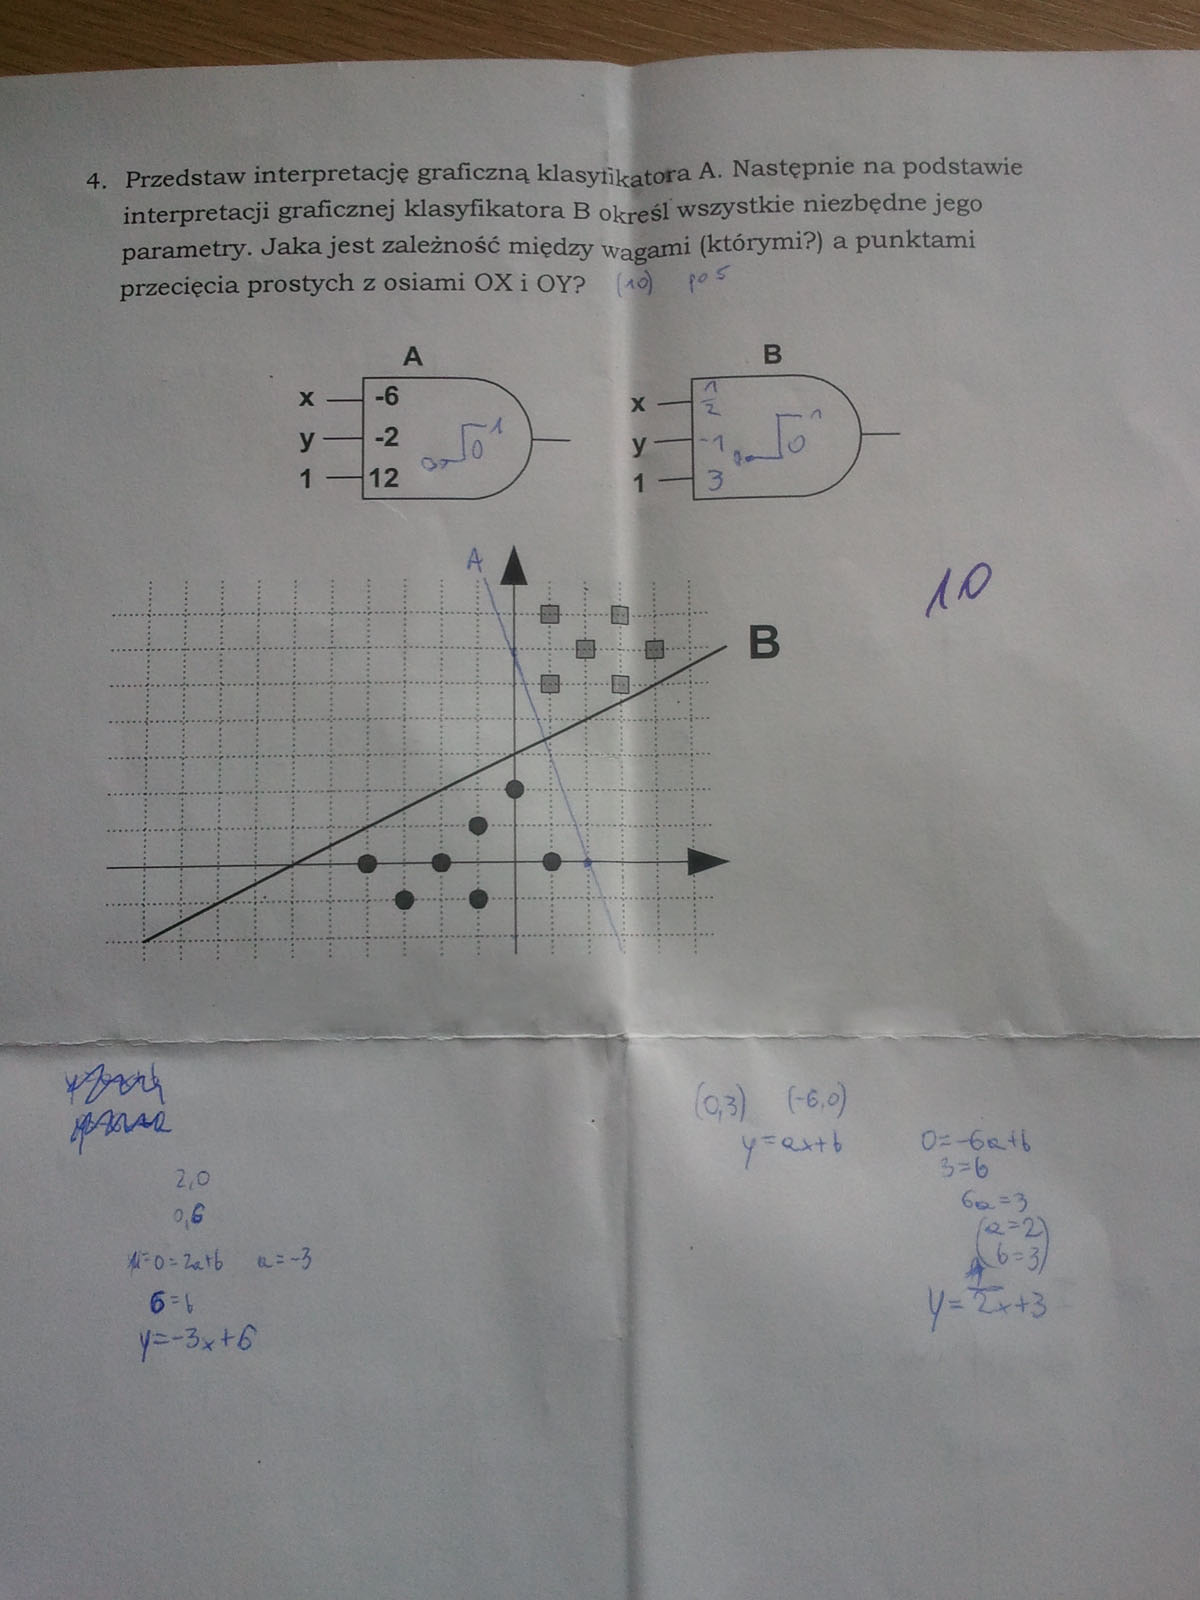 4. Przedstaw interpretację graficzną klasyfikatora A. Następnie na podstawie
interpretacji graficznej klasyfikatora B określ wszystkie niezbędne jego
parametry. Jaka jest zależność między wagami (którymi?) a punktami
przecięcia prostych z osiami OX i OY? (10) po 5
A
x -6
y -2
1 12
0 0 1
B
x 1/2
y -1
1 3
0 0 1
A
10
B
2,0
0,6
0=2a+b a=-3
6=b
y=-3x+6
(0,3) (-6,0)
y=ax+b
0=-6a+b
3=b
6a=3
(a=2
b=3)
y=1/2x+3